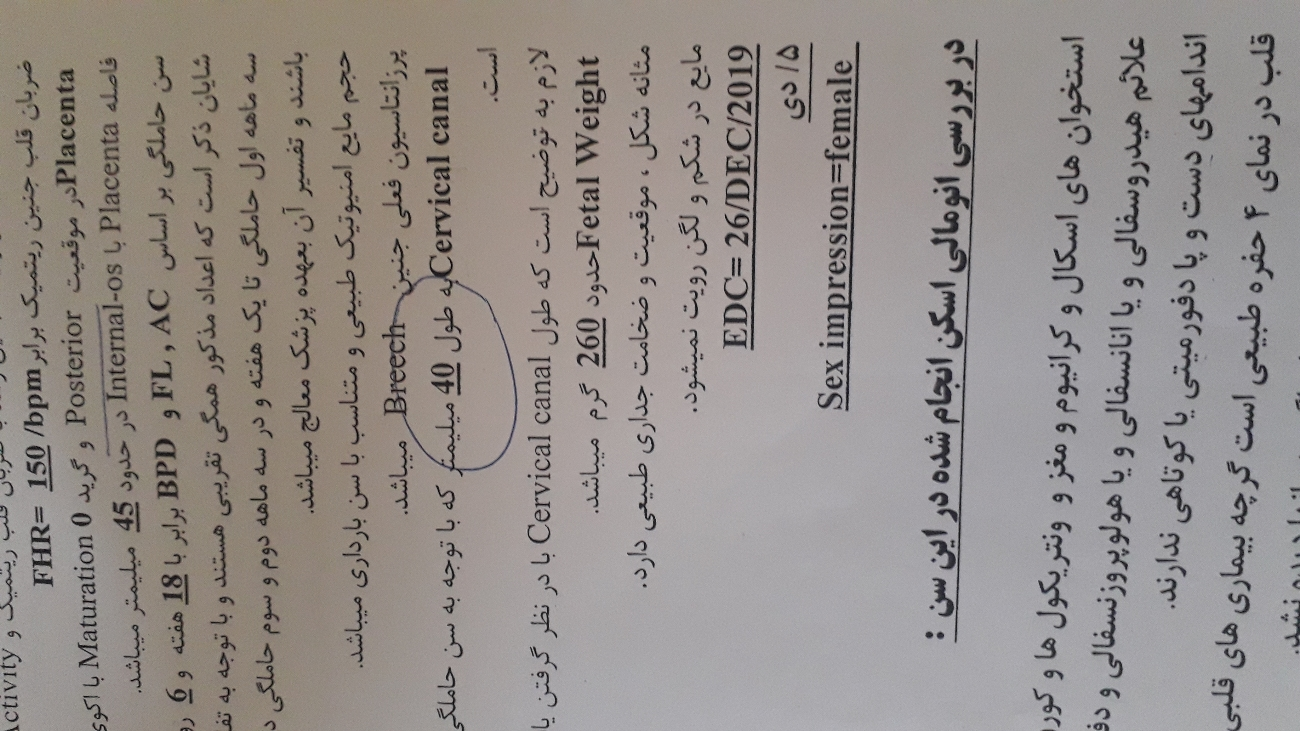 ضربان قلب جنین ریتمیک برابر FHR= 150 /bpm
Placenta در موقعیت Posterior و گرید Maturation 0 با اکوی
فاصله Placenta با Internal-os در حدود 45 میلیمتر میباشد.
سن حاملگی بر اساس FL , AC و BPD برابر با 18 هفته و 6
شایان ذکر است که اعداد مذکور همگی تقریبی هستند و با توجه به
سه ماهه اول حاملگی تا یک هفته و در سه ماهه دوم و سوم حاملگی
باشند و تفسیر آن بعهده پزشک معالج میباشد.
حجم مایع امنیوتیک طبیعی و متناسب با سن بارداری میباشد.
پرزانتاسیون فعلی جنین Breech میباشد.
Cervical canal به طول 40 میلیمتر که با توجه به سن حاملگی
است.
لازم به توضیح است که طول Cervical canal با در نظر گرفتن
Fetal Weight حدود 260 گرم میباشد.
مثانه شکل ، موقعیت و ضخامت جداری طبیعی دارد.
مایع در شکم و لگن رویت نمیشود.
EDC= 26/DEC/2019
۵/ دی
Sex impression=female
در بررسی انومالی اسکن انجام شده در این سن :
استخوان های اسکال و کرانیوم و مغز و ونتریکول ها و
علائم هیدروسفالی و یا انانسفالی و یا هولوپروزنسفالی و
اندامهای دست و پا دفورمیتی یا کوتاهی ندارند.
قلب در نمای ۴ حفره طبیعی است گرچه بیماری های قلبی
نشد.